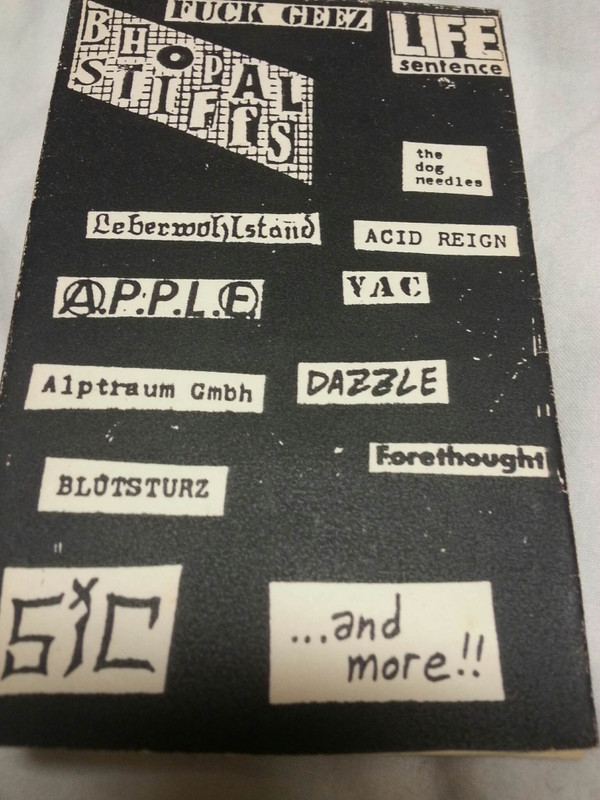 FUCK GEEZ
BHOPAL
STIFFS
LIFE
sentence
the
dog
needles
Leberwohlstand
ACID REIGN
A.P.P.L.E
VAC
Alptraum Gmbh
DAZZLE
Forethought
BLUTSTURZ
SIC
...and
more!!